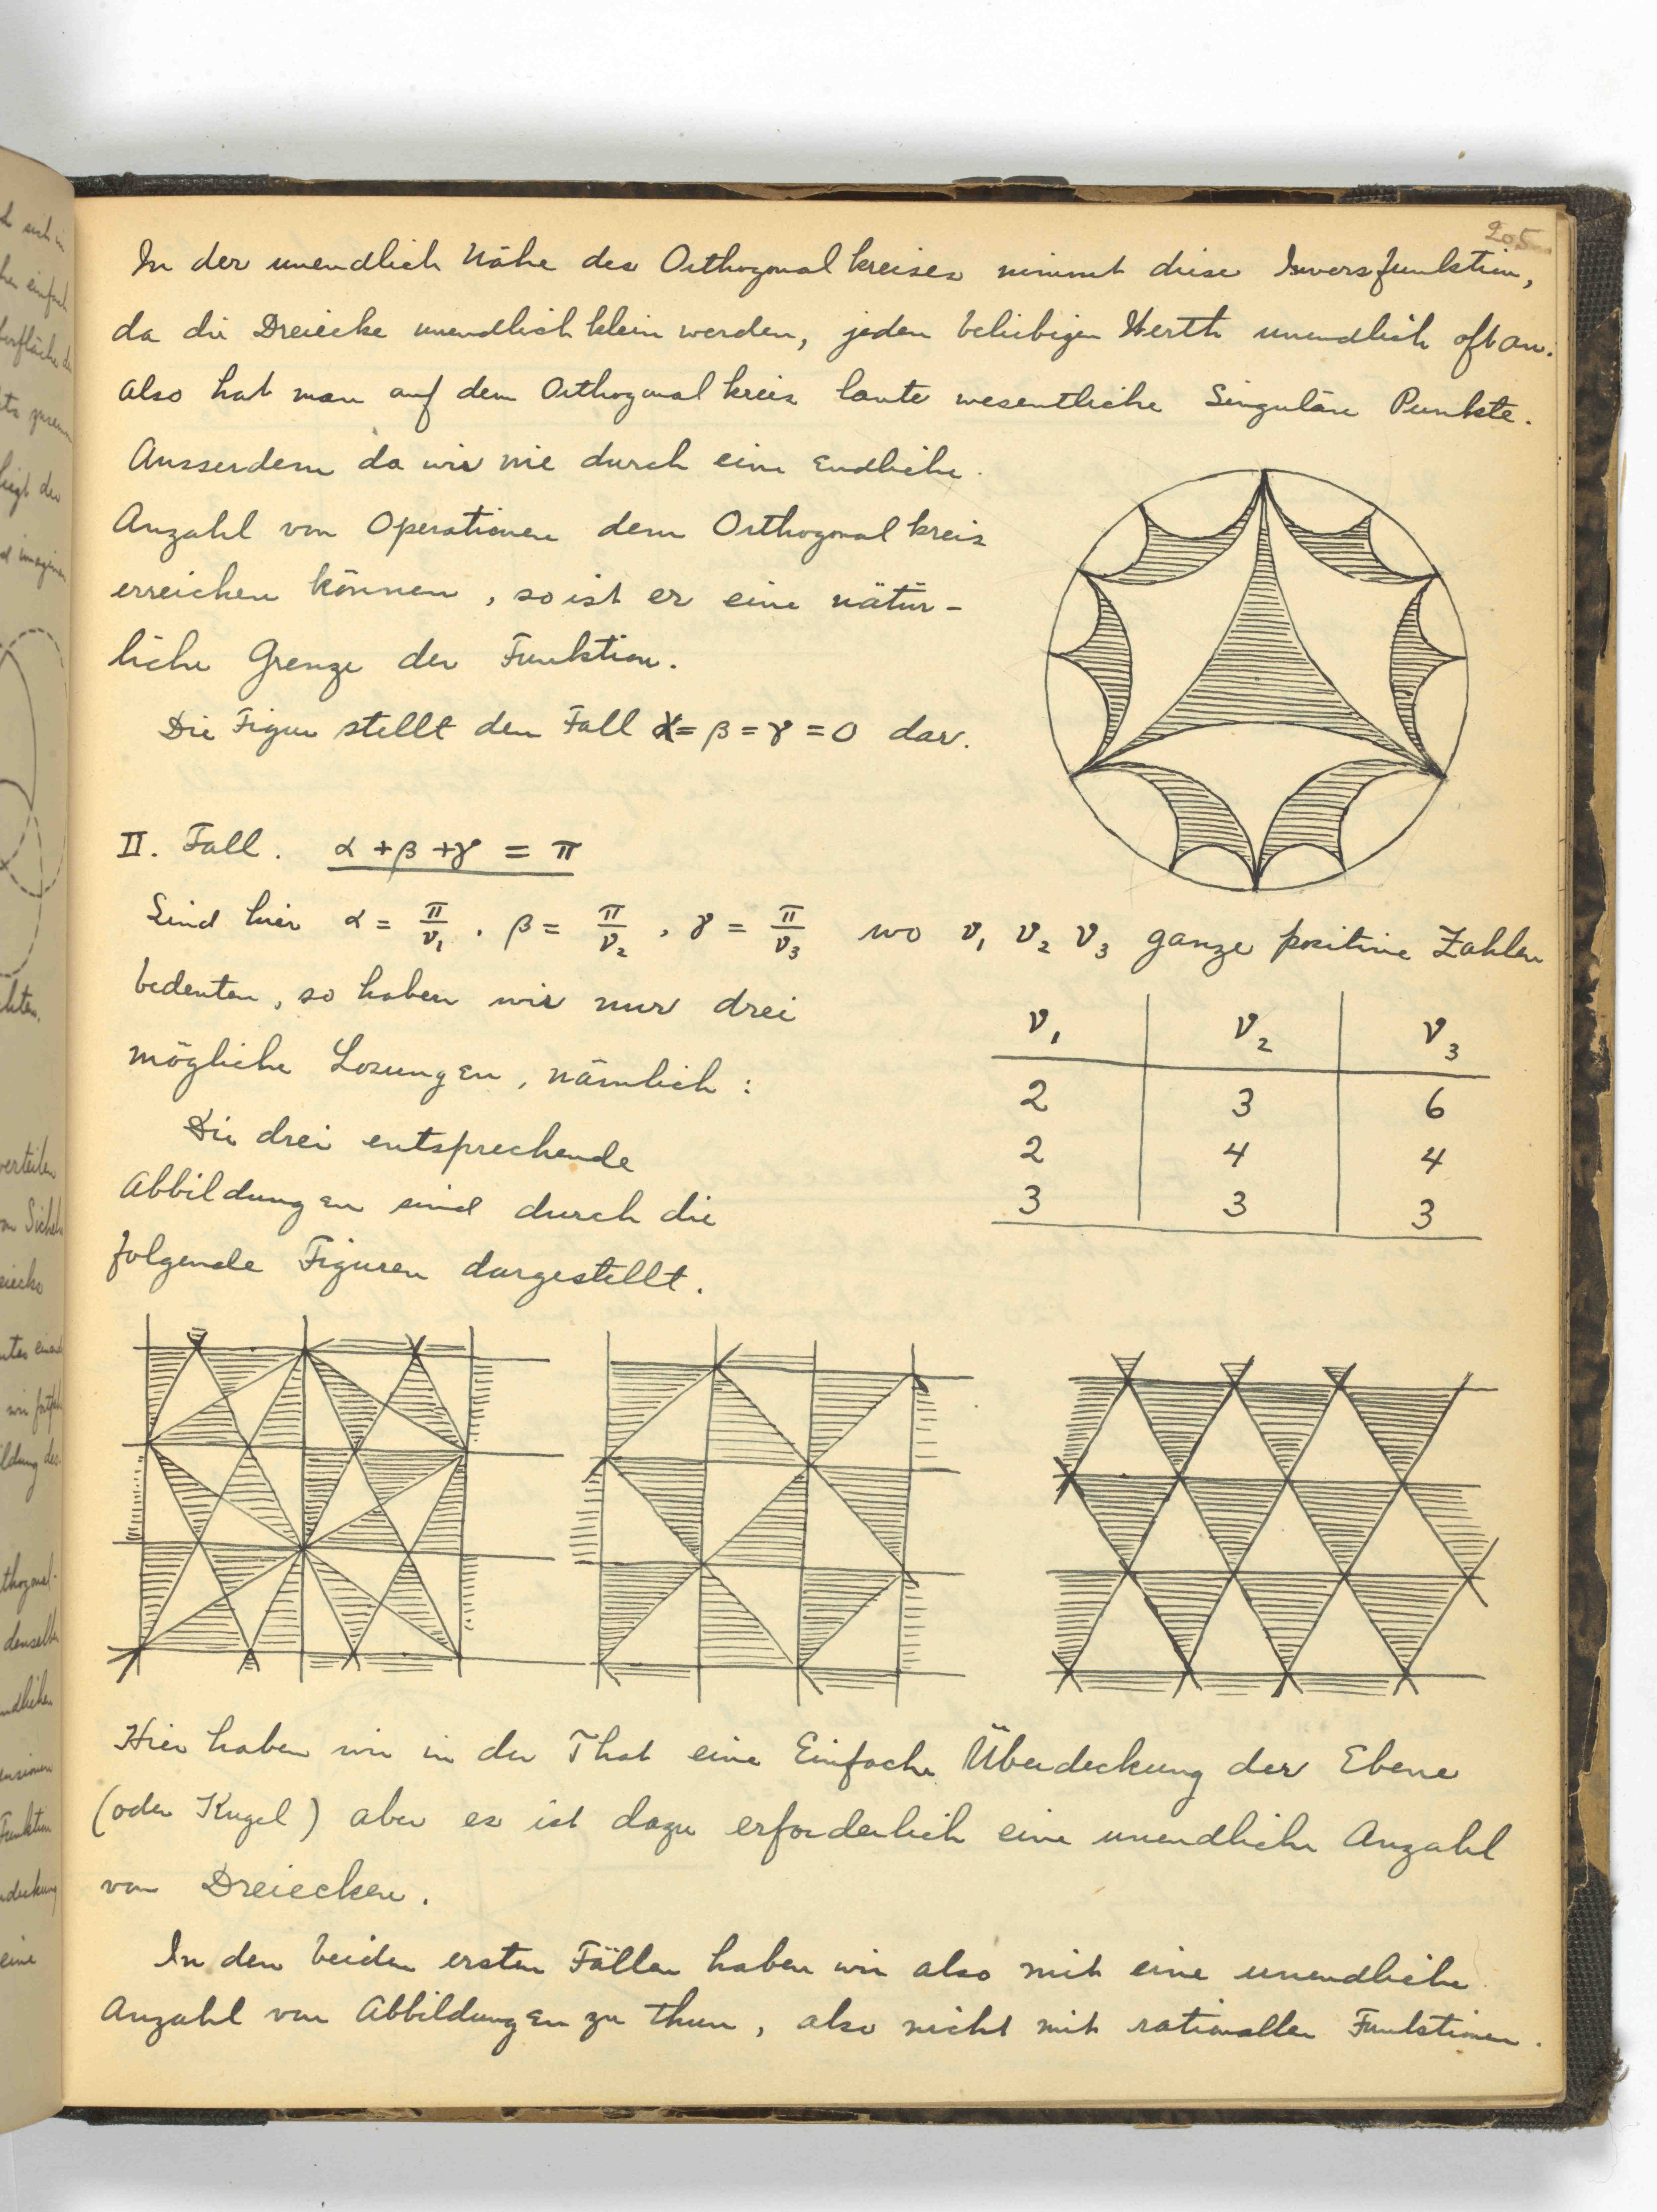 205
In der unendlich Nähe des Orthogonalkreises nimmt diese Inversfunktion,
da die Dreiecke unendlich klein werden, jeden beliebigen Werth unendlich oft an.
Also hat man auf dem Orthogonalkreis laute wesentliche Singuläre Punkte.
Ausserdem da wir nie durch eine Endliche
Anzahl von Operationen dem Orthogonalkreis
erreichen können, so ist er eine nätür-
liche Grenze der Funktion.
Die Figur stellt den Fall α = β = γ = 0 dar.
II. Fall. α + β + γ = π
Sind hier α = π/ν₁, β = π/ν₂, γ = π/ν₃ wo ν₁ ν₂ ν₃ ganze positive Zahlen
bedenten, so haben wir nur drei
mögliche Losungen, nämlich:
ν₁ ν₂ ν₃
2 3 6
2 4 4
3 3 3
Die drei entsprechende
Abbildungen sind durch die
folgende Figuren dargestellt.
Hier haben wir in der That eine Einfache Überdeckung der Ebene
(oder Kugel) aber es ist dazu erforderlich eine unendliche Anzahl
von Dreiecken.
In den beiden ersten Fällen haben wir also mit eine unendliche
Anzahl von Abbildungen zu thun, also nicht mit rationallen Funktionen.